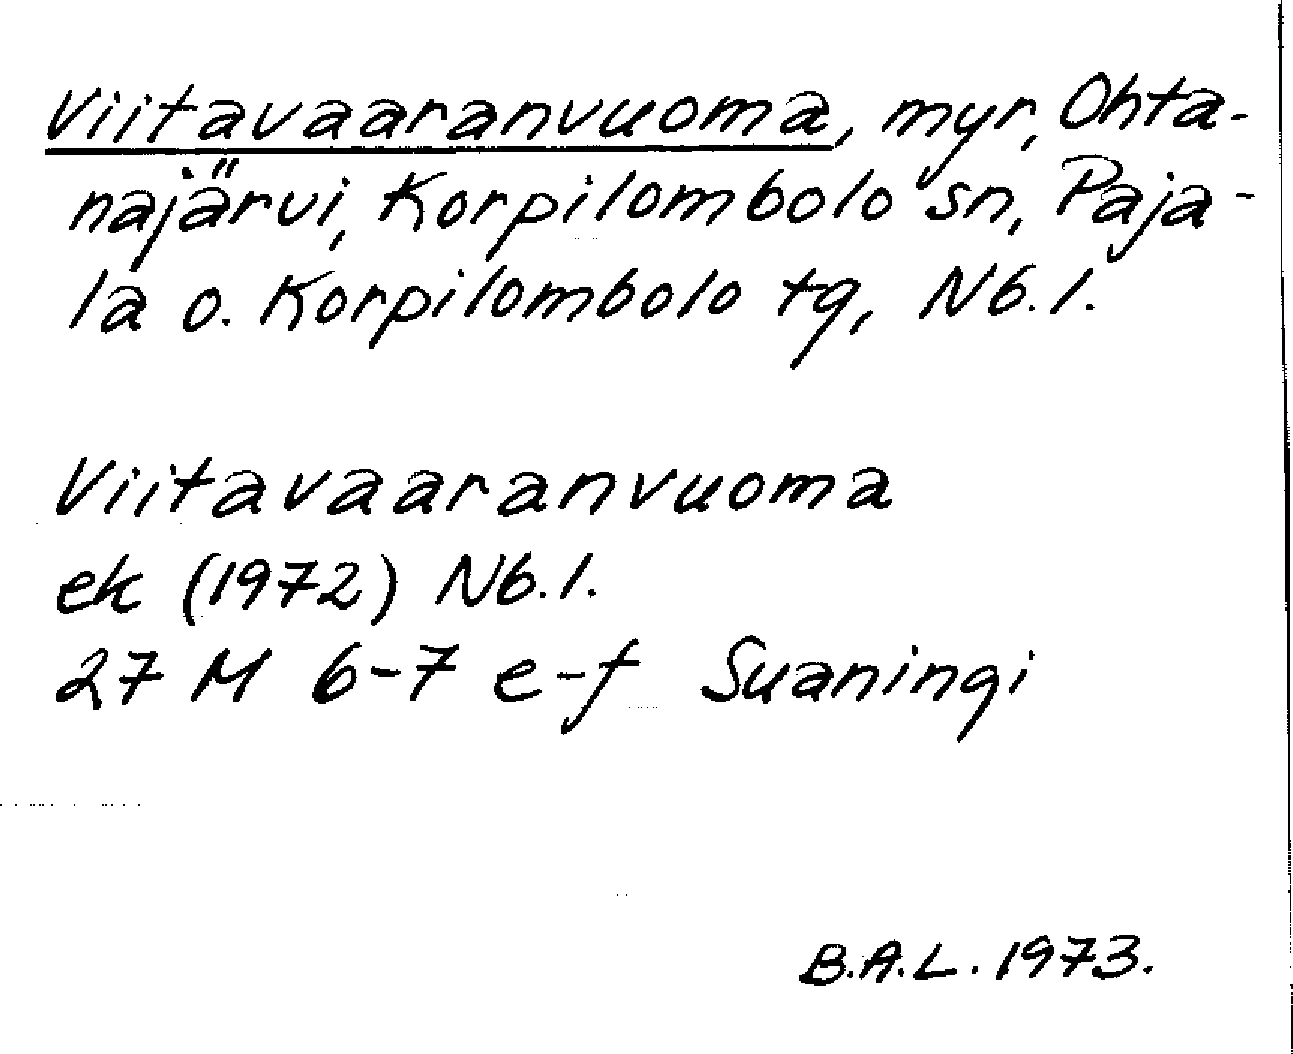 Viitavaaranvuoma, myr, Ohta-
najärvi, Korpilombolo sn, Paja-
la o. Korpilombolo tg, Nb.l.
Viitavaaranvuoma
ek (1972) Nb.l.
27 M 6-7 e-f Suaningi
B.A.L. 1973.